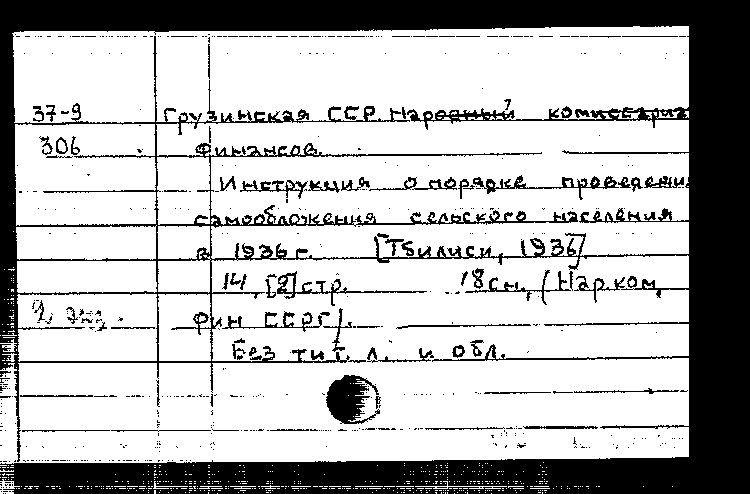 37-9 Грузинская ССР. Народный комиссариат
306 Финансов.
Инструкция о порядке проведени
самообложения сельского населения
в 1936 г. [Тбилиси, 1936].
14, [2] стр. 18 см. (Нар. ком.
2 экз. фин ССРГ).
Без тит. л. и обл.